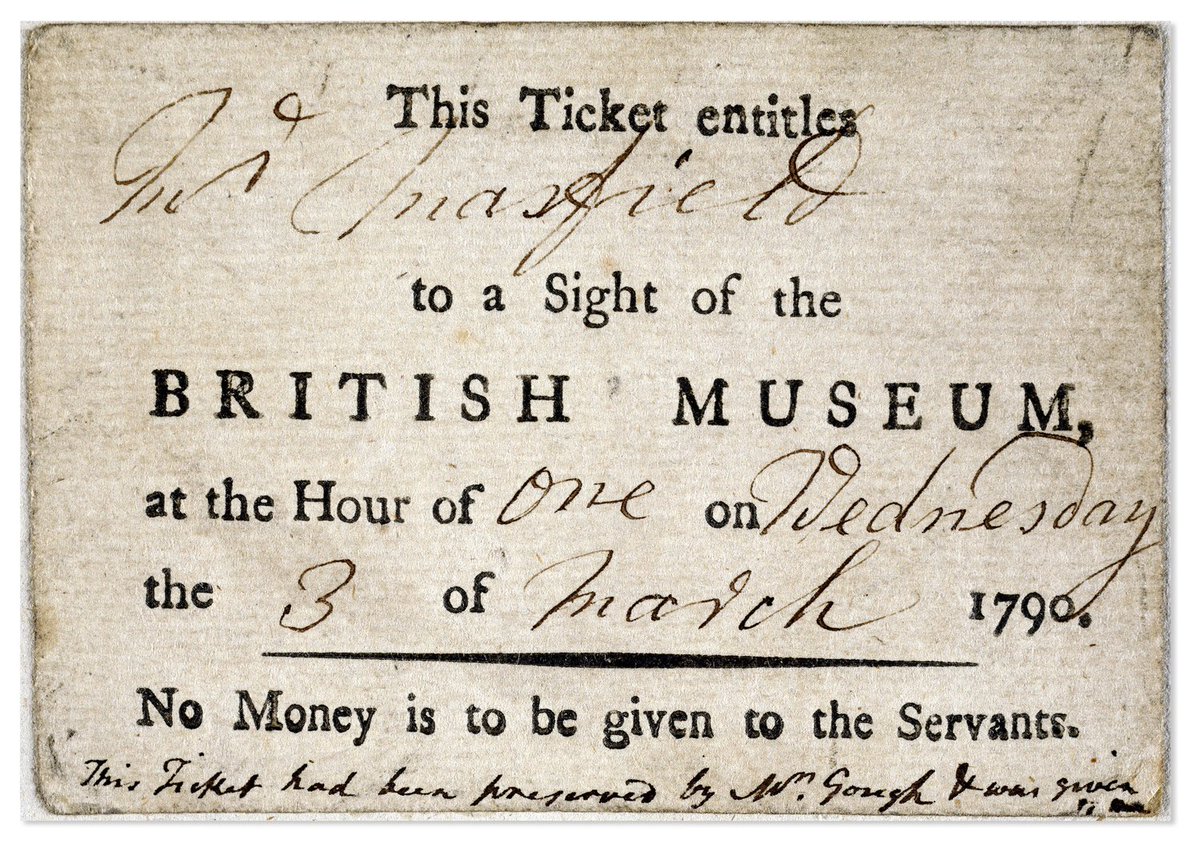 This Ticket entitles
to a Sight of the
BRITISH MUSEUM,
at the Hour of one on Wednesday
the 3 of March 1790.
No Money is to be given to the Servants.
This Ticket had been preserved by Gough & was given